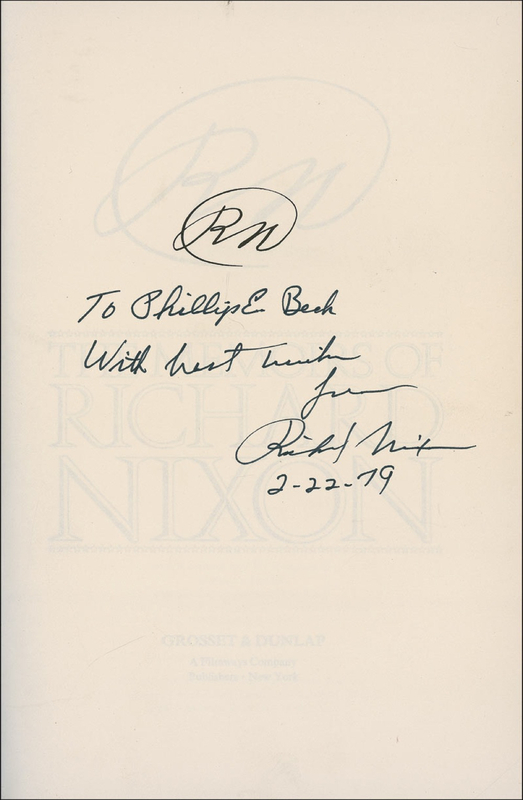 RN
RN
To Phillip E. Beck
With best wishes
from
Richard Nixon
2-22-79
THE MEMOIRS OF
RICHARD
NIXON
GROSSET & DUNLAP
A Filmways Company
Publishers · New York